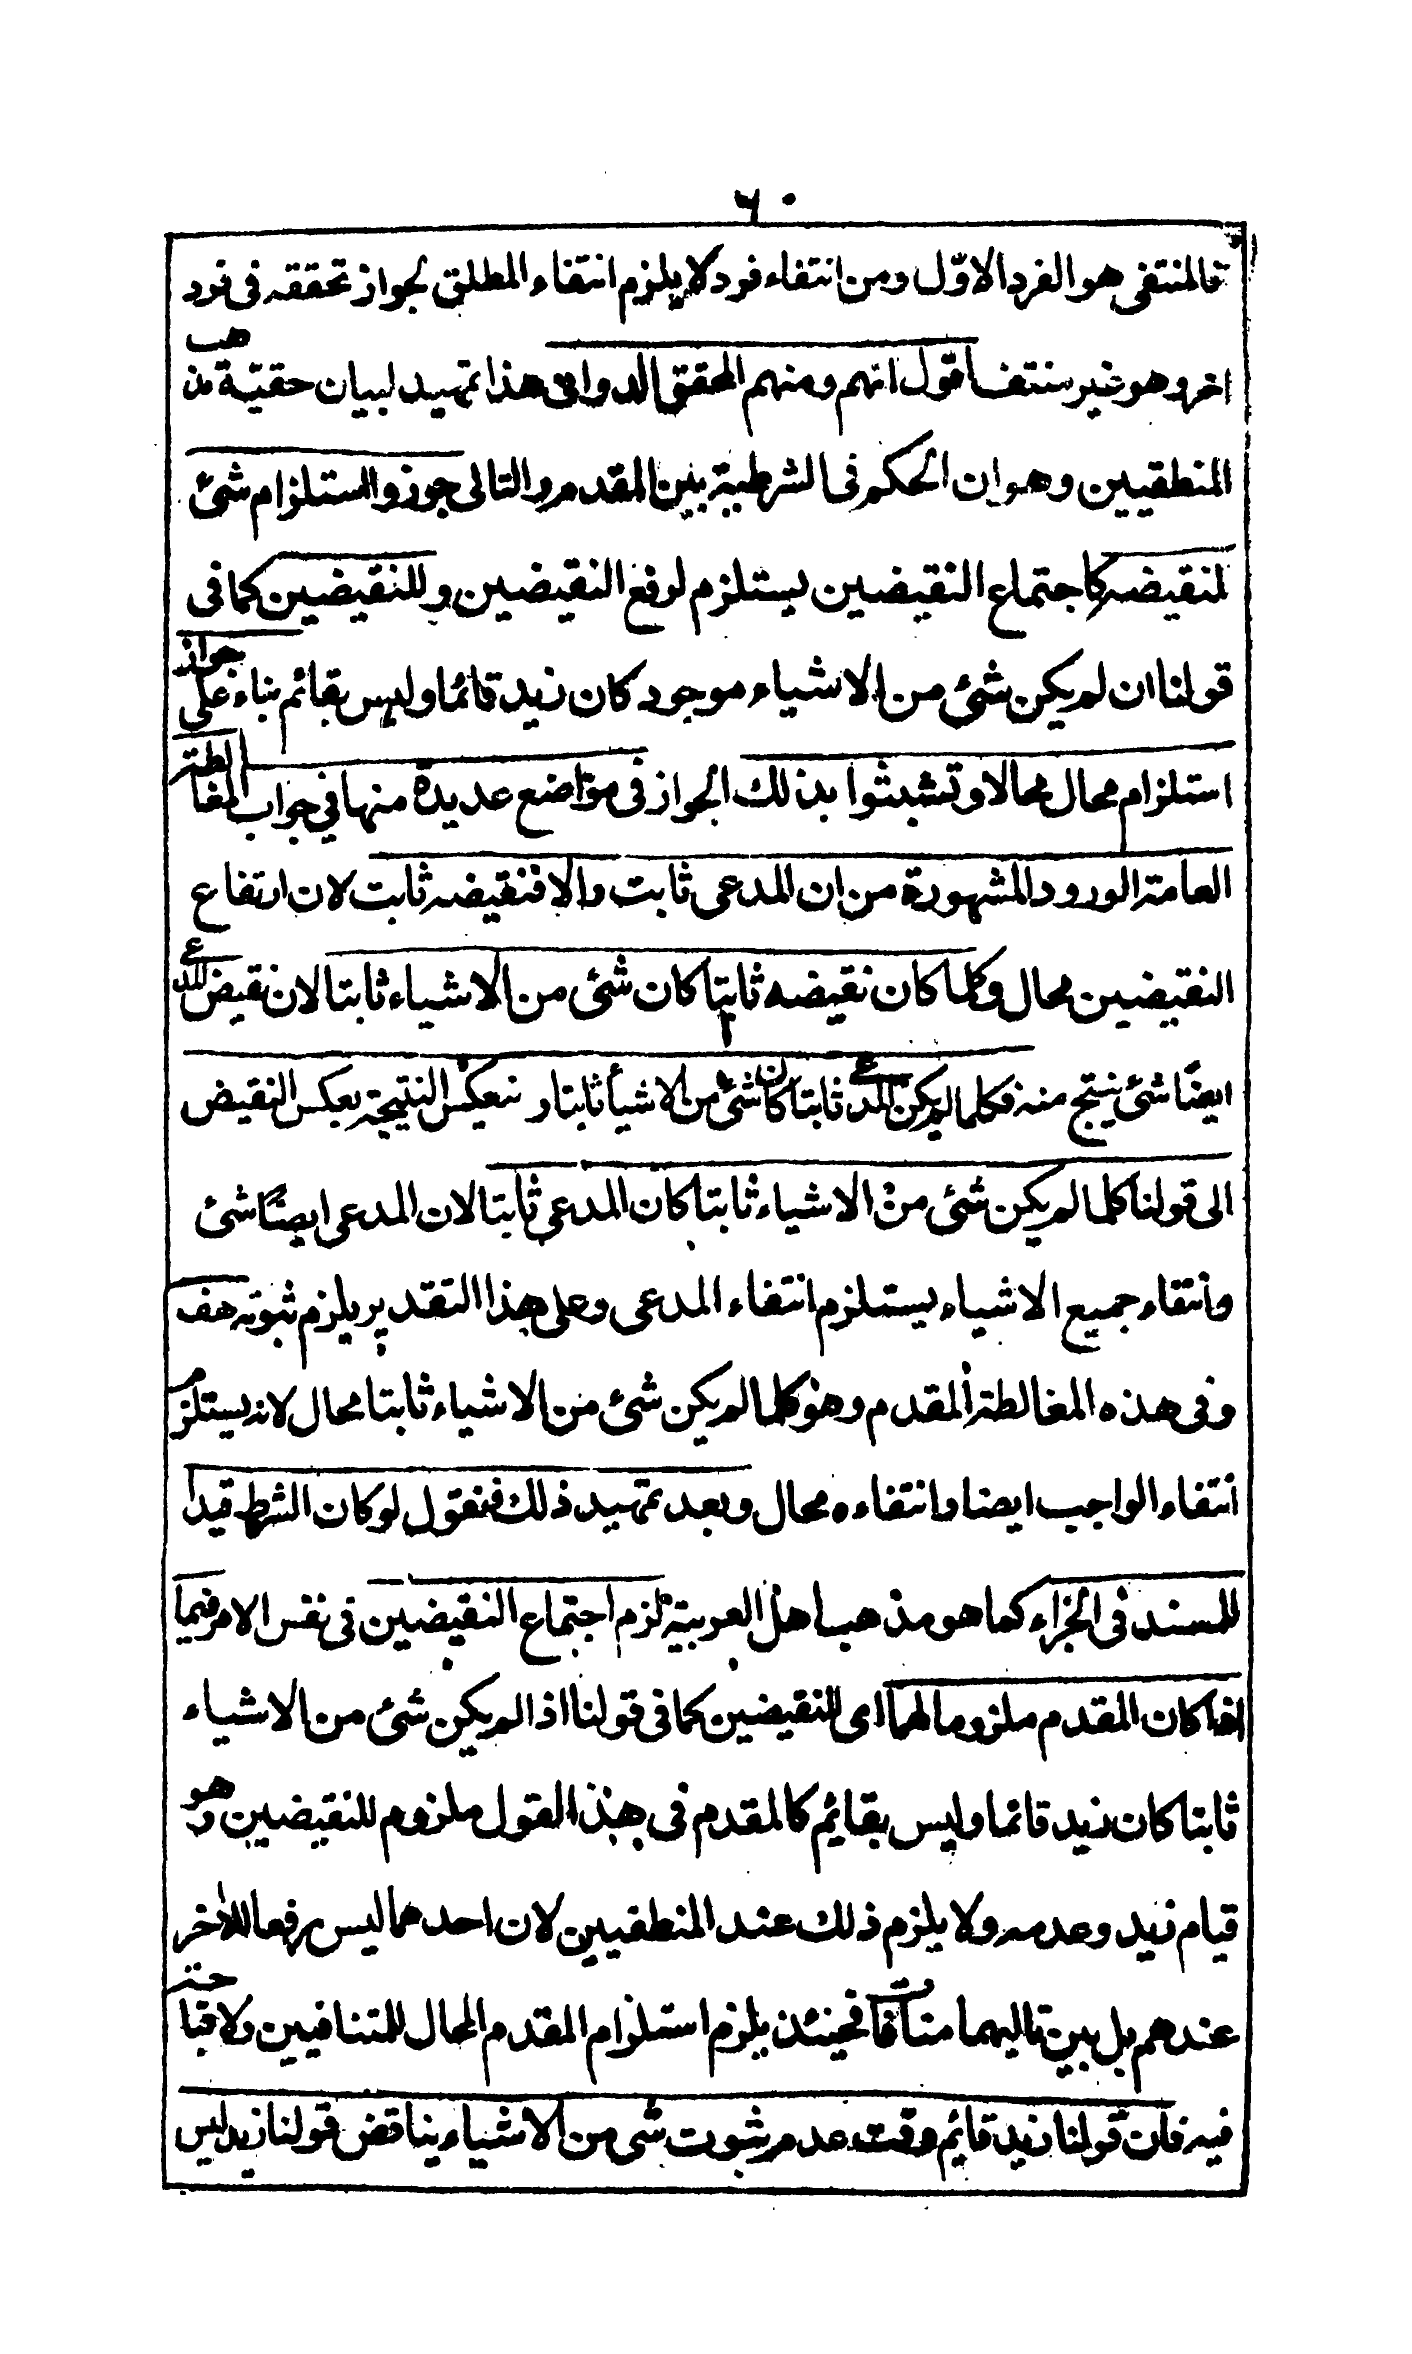 ٦٠
فالمنتفى هو الفرد الاوّل ومن انتفاء فرد لا يلزم انتفاء المطلق لجواز تحققه فى فرد
اخر وهو غير منتف اقول انهم ومنهم المحقق الدوانى هذا تمهيد لبيان حقيّة مذهب
المنطقيين وهو ان الحكم فى الشرطية بين المقدم والتالى جوزوا استلزام شئ
لنقيضه كاجتماع النقيضين يستلزم لرفع النقيضين وللنقيضين كما فى
قولنا ان لم يكن شئ من الاشياء موجود كان زيد قائما وليس بقائم بناء على جواز
استلزام محال محالا وتشبثوا بذلك الجواز فى مواضع عديدة منها فى جواب المغالطة
العامة الورود المشهورة من ان المدعى ثابت والا فنقيضه ثابت لان ارتفاع
النقيضين محال وكلما كان نقيضه ثابتا كان شئ من الاشياء ثابتا لان نقيض المدعى
ايضًا شئ ينتج منه فكلما لم يكن المدعى ثابتا كان شئ من الاشيأ ثابتا و ننعكس النتيجة بعكس النقيض
الى قولنا كلما لم يكن شئ من الاشياء ثابتا كان المدعى ثابتا لان المدعى ايضًا شئ
وانتفاء جميع الاشياء يستلزم انتفاء المدعى وعلى هذا التقدير يلزم ثبوته هف
وفى هذه المغالطة المقدم وهو كلما لم يكن شئ من الاشياء ثابتا محال لانه يستلزم
انتفاء الواجب ايضا وانتفاءه محال وبعد تمهيد ذلك فنقول لو كان الشرط قيدا
للمسند فى الجزاء كما هو مذهب اهل العربية لزم اجتماع النقيضين فى نفس الامر فيما
اذا كان المقدم ملزوما لهما اى للنقيضين كما فى قولنا اذا لم يكن شئ من الاشياء
ثابتا كان زيد قائما وليس بقائم كالمقدم فى هذا القول ملزوم للنقيضين وهو
قيام زيد وعدمه ولا يلزم ذلك عند المنطقيين لان احدهما ليس رفعا للاخر
عندهم بل بين تاليهما منافاة فحينئذ يلزم استلزام المقدم المحال للمتنافيين ولا قباحة
فيه فان قولنا زيد قائم وقت عدم ثبوت شى من الاشياء يناقض قولنا زيد ليس